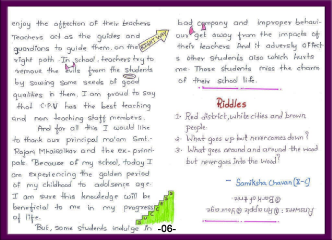 enjoy the affection of their teachers
Teachers act as the guides and
guardians to guide them, on the
right path. In school, teachers try to
remove the evils from the students
by sowing some seeds of good
qualities in them. I am proud to say
that C.P.V has the best teaching
and non teaching staff members.
And for all this I would like
to thank our principal ma'am Smt.-
and the ex-princi-
pal. Because of my school, today I
am experiencing the golden period
of my childhood to adolsence age.
I am sure this knowledge will be
beneficial to me in my progress
of life.
But, some students indulge in
bad company and improper behavi-
our get away from the impacts of
their teachers. And it adversly affect
s other students also which hurts
me. Those students miss the charm
of their school life.
Riddles
1- Red district, white cities and brown
people.
2- What goes up but never comes down?
3- What goes around and around the wood
but never goes into the wood?
- Samiksha Chavan (X-C)
Answers: ①An apple ②Your age
③Bark of tree
-06-